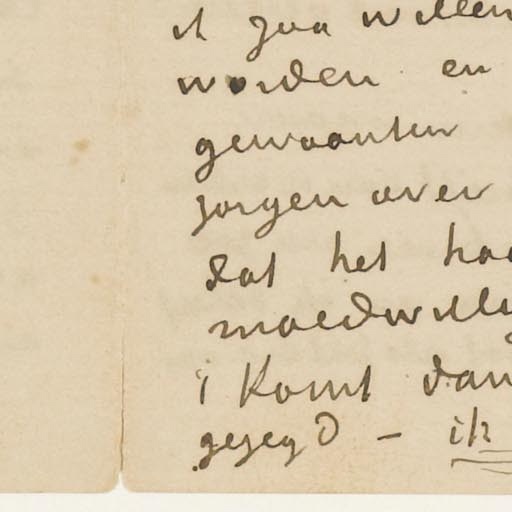 it zou willen
worden en
gewoonten
zorgen over
dat het haa
moedwillig
't Komt dan
gezegd – ik